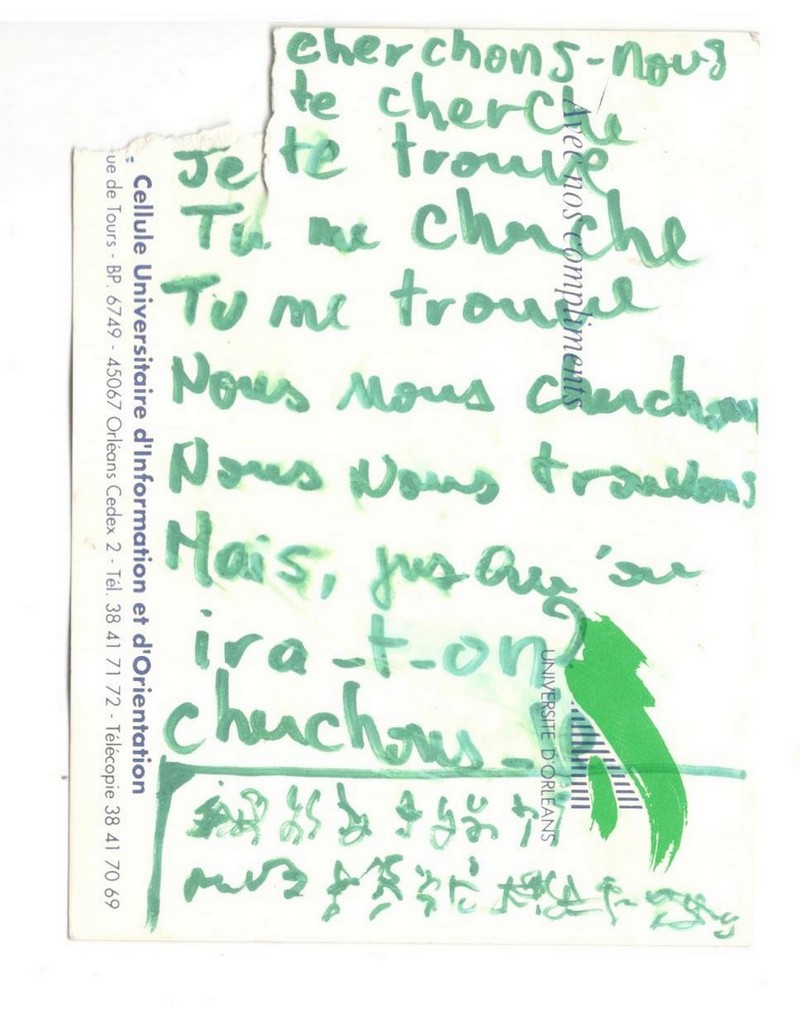 cherchons-nous
te cherche
Je te trouve
Tu me cherche
Tu me trouve
Nous Nous cherchons
Nous Nous trouvons
Mais, jusqu'ou
ira-t-on?
cherchons-
Avec nos compliments
UNIVERSITE D'ORLEANS
Cellule Universitaire d'Information et d'Orientation
ue de Tours - BP. 6749 - 45067 Orléans Cedex 2 - Tél. 38 41 71 72 - Télécopie 38 41 70 69